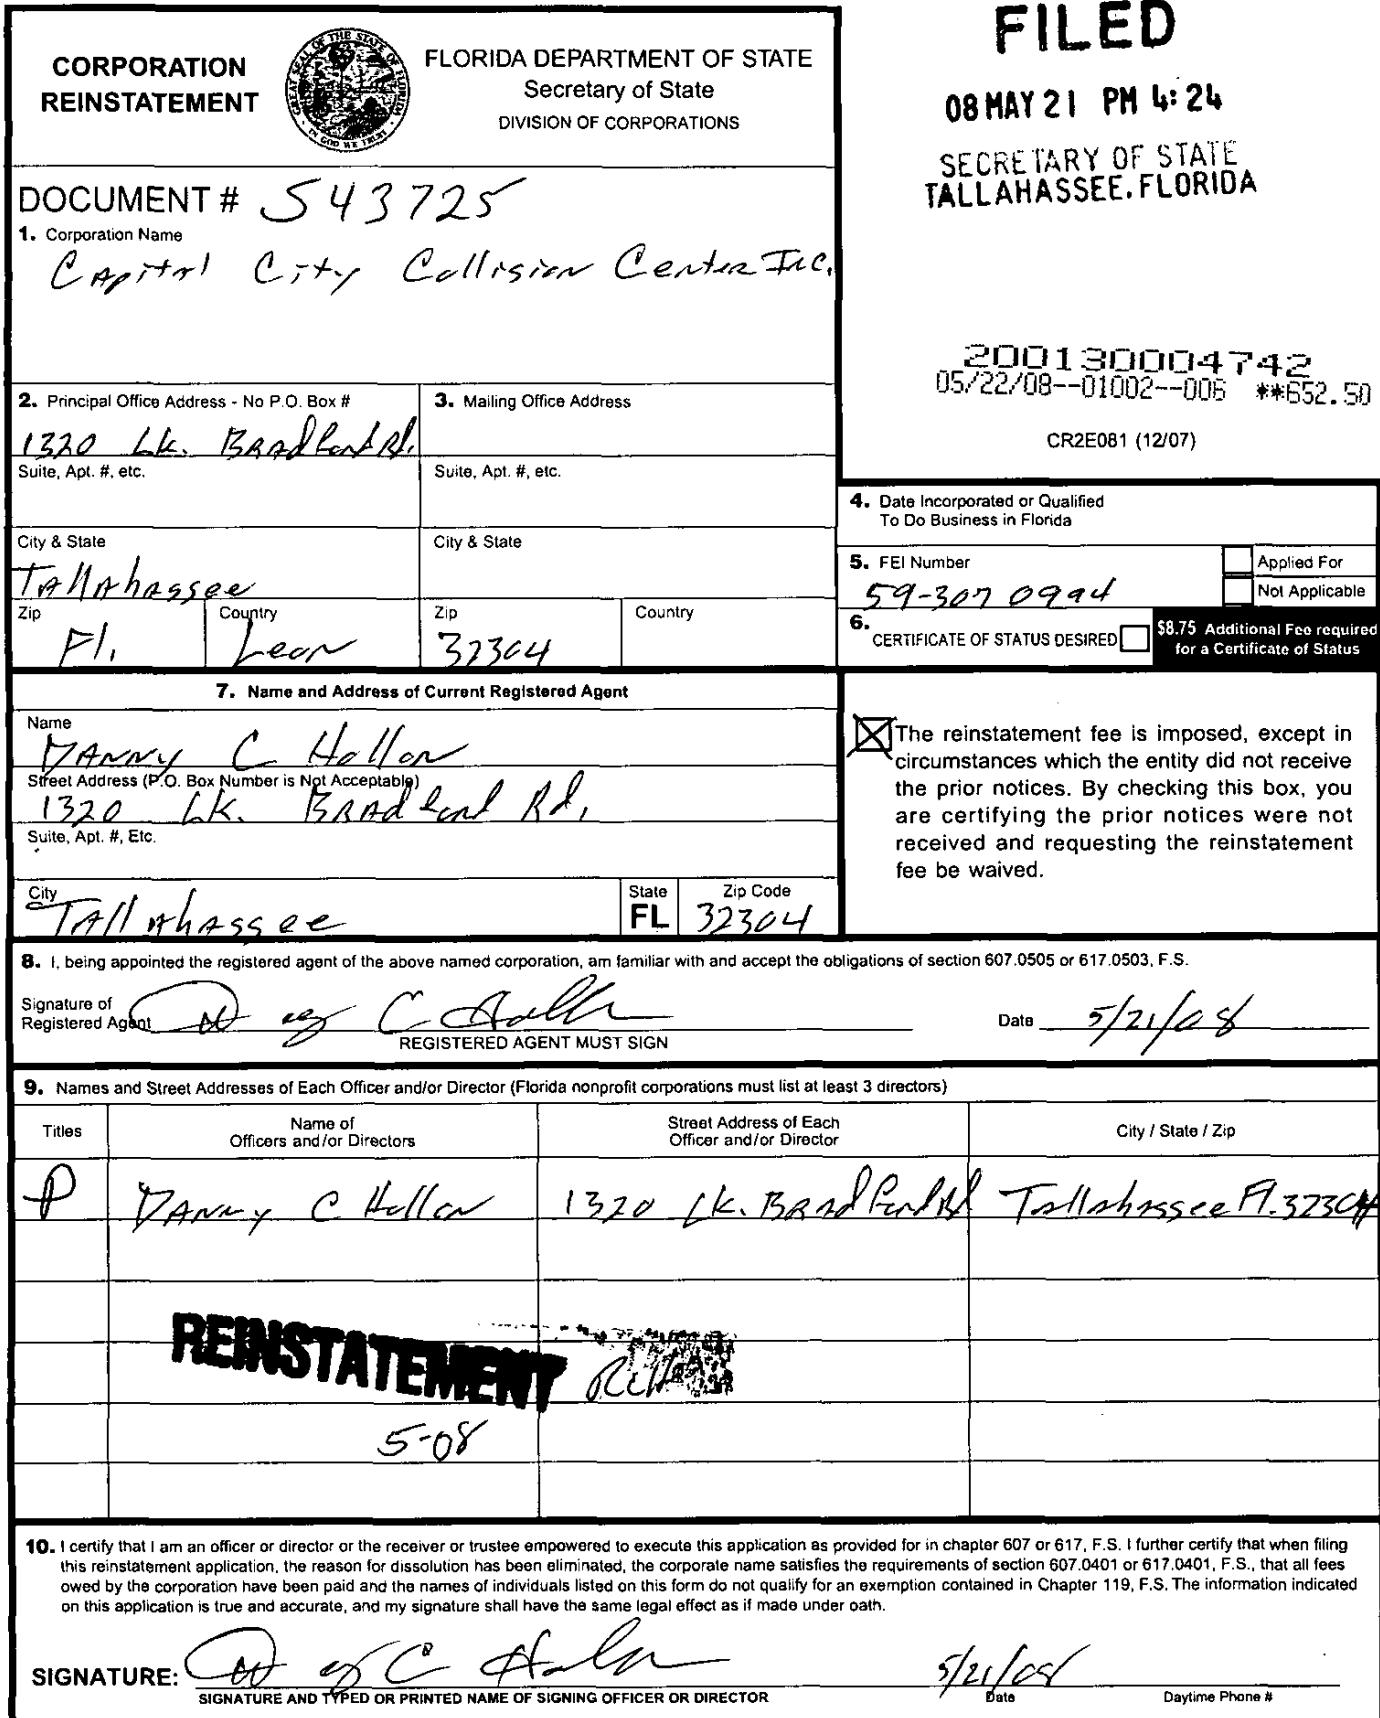 CORPORATION
REINSTATEMENT
GREAT SEAL OF THE STATE OF FLORIDA
IN GOD WE TRUST
FLORIDA DEPARTMENT OF STATE
Secretary of State
DIVISION OF CORPORATIONS
FILED
08 MAY 21 PM 4:24
SECRETARY OF STATE
TALLAHASSEE, FLORIDA
DOCUMENT # S43725
1. Corporation Name
Capital City Collision Center Inc.
200130004742
05/22/08--01002--006 **652.50
CR2E081 (12/07)
2. Principal Office Address - No P.O. Box #
1320 Lk. Bradford Rd.
3. Mailing Office Address
Suite, Apt. #, etc.
Suite, Apt. #, etc.
City & State
Tallahassee
City & State
Zip
Fl.
Country
Leon
Zip
32304
Country
4. Date Incorporated or Qualified
To Do Business in Florida
5. FEI Number
59-307 0994
Applied For
Not Applicable
6. CERTIFICATE OF STATUS DESIRED
$8.75 Additional Fee required
for a Certificate of Status
7. Name and Address of Current Registered Agent
Name
Danny C Hollon
Street Address (P.O. Box Number is Not Acceptable)
1320 Lk. Bradford Rd.
Suite, Apt. #, Etc.
City
Tallahassee
State
FL
Zip Code
32304
The reinstatement fee is imposed, except in
circumstances which the entity did not receive
the prior notices. By checking this box, you
are certifying the prior notices were not
received and requesting the reinstatement
fee be waived.
8. I, being appointed the registered agent of the above named corporation, am familiar with and accept the obligations of section 607.0505 or 617.0503, F.S.
Signature of
Registered Agent
REGISTERED AGENT MUST SIGN
Date 5/21/08
9. Names and Street Addresses of Each Officer and/or Director (Florida nonprofit corporations must list at least 3 directors)
Titles
Name of
Officers and/or Directors
Street Address of Each
Officer and/or Director
City / State / Zip
P Danny C Hollon 1320 Lk. Bradford Rd Tallahassee Fl. 32304
REINSTATEMENT
5-08
10. I certify that I am an officer or director or the receiver or trustee empowered to execute this application as provided for in chapter 607 or 617, F.S. I further certify that when filing
this reinstatement application, the reason for dissolution has been eliminated, the corporate name satisfies the requirements of section 607.0401 or 617.0401, F.S., that all fees
owed by the corporation have been paid and the names of individuals listed on this form do not qualify for an exemption contained in Chapter 119, F.S. The information indicated
on this application is true and accurate, and my signature shall have the same legal effect as if made under oath.
SIGNATURE:
5/21/08
SIGNATURE AND TYPED OR PRINTED NAME OF SIGNING OFFICER OR DIRECTOR
Date
Daytime Phone #